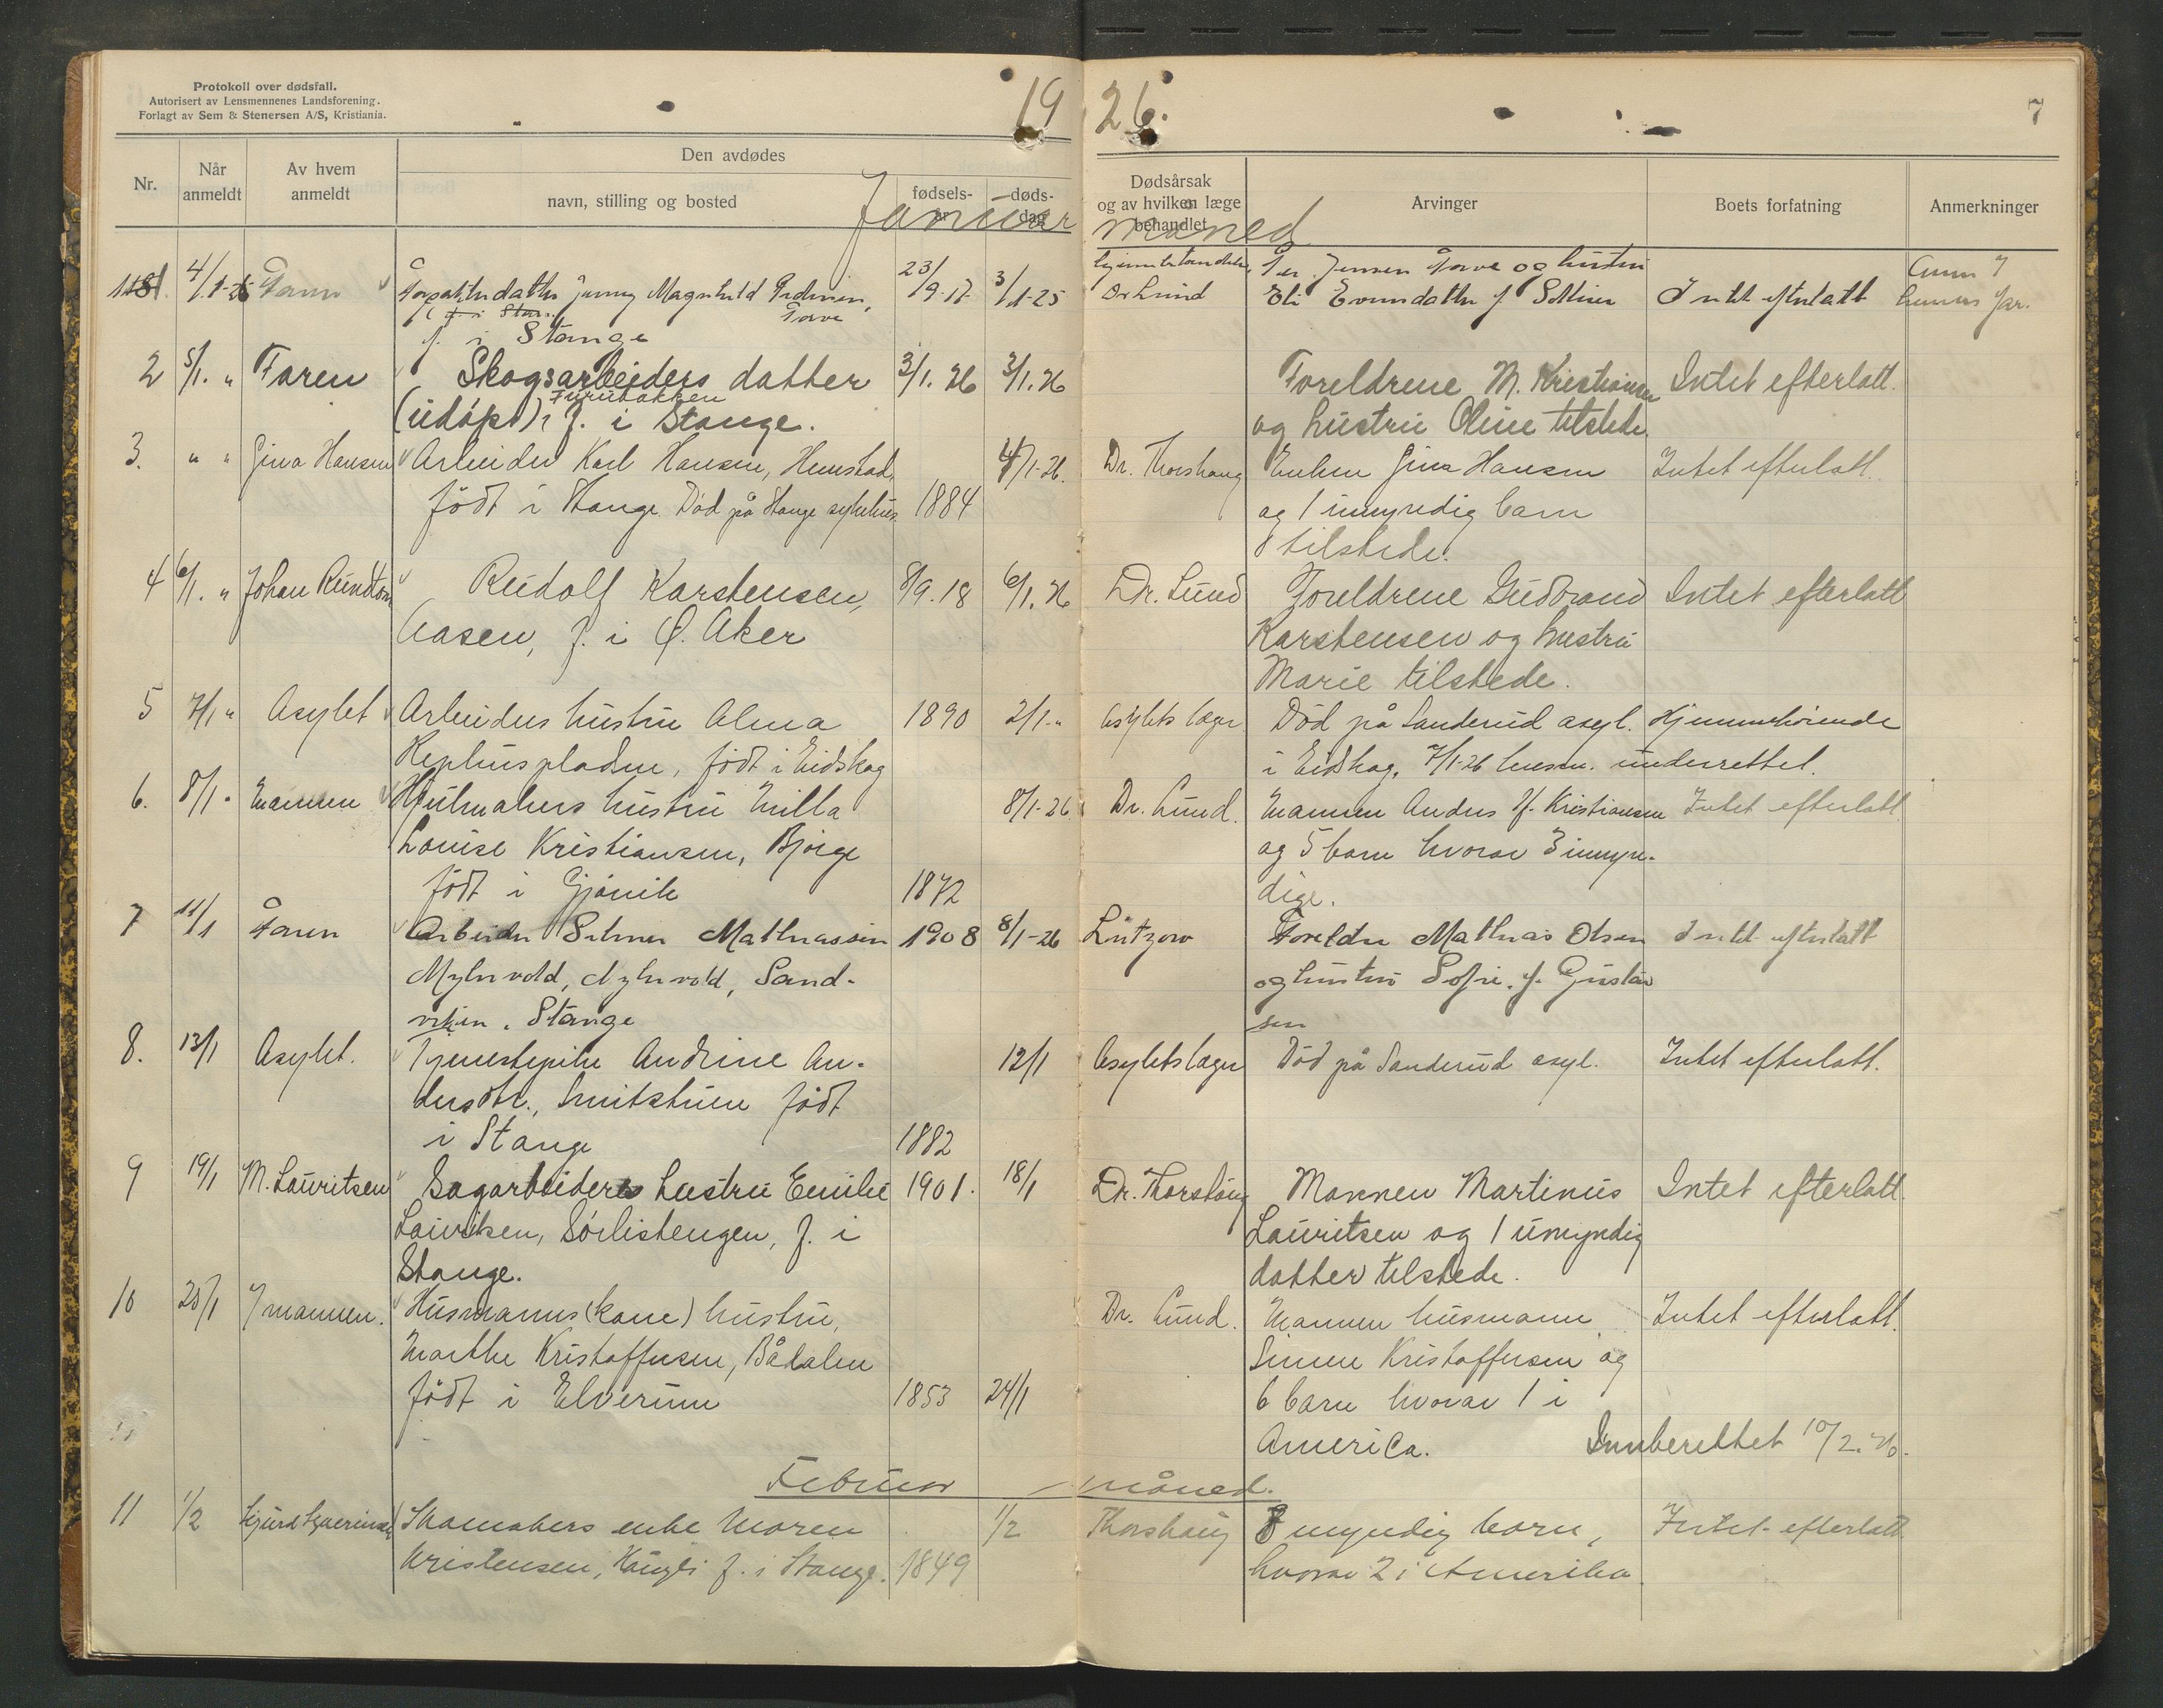 Protokoll over dødsfall.
Autorisert av Lensmennenes Landsforening.
Forlagt av Sem & Stenersen A/S, Kristiania.
19 26.
7
Nr.
Når anmeldt
Av hvem anmeldt
Den avdødes
navn, stilling og bosted
fødsels-
døds-
dag
Dødsårsak
og av hvilken læge
behandlet
Arvinger
Boets forfatning
Anmerkninger
Januar måned
1 4/1-26 Faren datter Jenny Magnhild Pedersen, 23/9-17 3/1-25 Dr Lund Per Jensen og hustru
f. i Stange
Eli Evensdatter f. Intet efterlatt
2 5/1. " Faren Skogsarbeiders datter 3/1. 26 3/1. 26 Foreldrene M. Kristiansen Intet efterlatt.
Furubakken
(udöpt), f. i Stange. og hustru Oline tilstede.
3. " " Gina Hansen Arbeider Karl Hansen, Hemstad, 4/1-26. Dr. Thorshaug Enken Gina Hansen Intet efterlatt.
födt i Stange Död på Stange sykehus 1884 og 1 umyndig barn
tilstede.
4 6/1. " Johan Rundtom Rudolf Karstensen, 8/9.18 6/1. 26 Dr. Lund Foreldrene Gudbrand Intet efterlatt
Aasen, f. i Ø. Aker Karstensen og hustru
Marie tilstede.
5 7/1 " Asylet Arbeiders hustru Alma 1890 2/1 " Asylets læge Död på Sanderud asyl. Hjemmehörende
födt i Eidskog i Eidskog. 7/1-26 lensm. underrettet.
6. 8/1 " Mannen Hjulmakers hustru Milla 8/1-26 Dr. Lund. Mannen Anders H. Kristiansen Intet efterlatt
Louise Kristiansen, Bjørge og 5 barn hvorav 3 umyn-
födt i Gjövik 1872 dige.
7 11/1 Faren Arbeider Selmer Mathiassen 1908 8/1-26 Lützow Foreldre Mathias Olsen Intet efterlatt
Myhrvold, Myhrvold, Sand- og hustru Sofie f. Gustav
viken. Stange sen
8. 13/1 Asylet. Tjenestepike Andrine An- 12/1 Asylets læge Död på Sanderud asyl. Intet efterlatt.
dersdtr., Smitstuen födt
i Stange 1882
9 19/1 M. Lauritsen Sagarbeiders hustru Emilie 1901. 18/1 Dr. Thorshaug Mannen Martinus Intet efterlatt.
Lauritsen, Sörlistengen, f. i Lauritsen og 1 umyndig
Stange. datter tilstede.
10 25/1 mannen. Husmanns (kone) hustru, Dr. Lund. Mannen husmann Intet efterlatt.
Marthe Kristoffersen, Bådalen Simen Kristoffersen og
födt i Elverum 1853 24/1 6 barn hvorav 1 i
America. Innberettet 10/2. 26.
Februar måned.
11 1/2 Sigurd Skomakers enke Maren 1/2 Thorshaug 8 myndig barn, Intet efterlatt
Kristensen, f. i Stange. 1849 hvorav 2 i Amerika